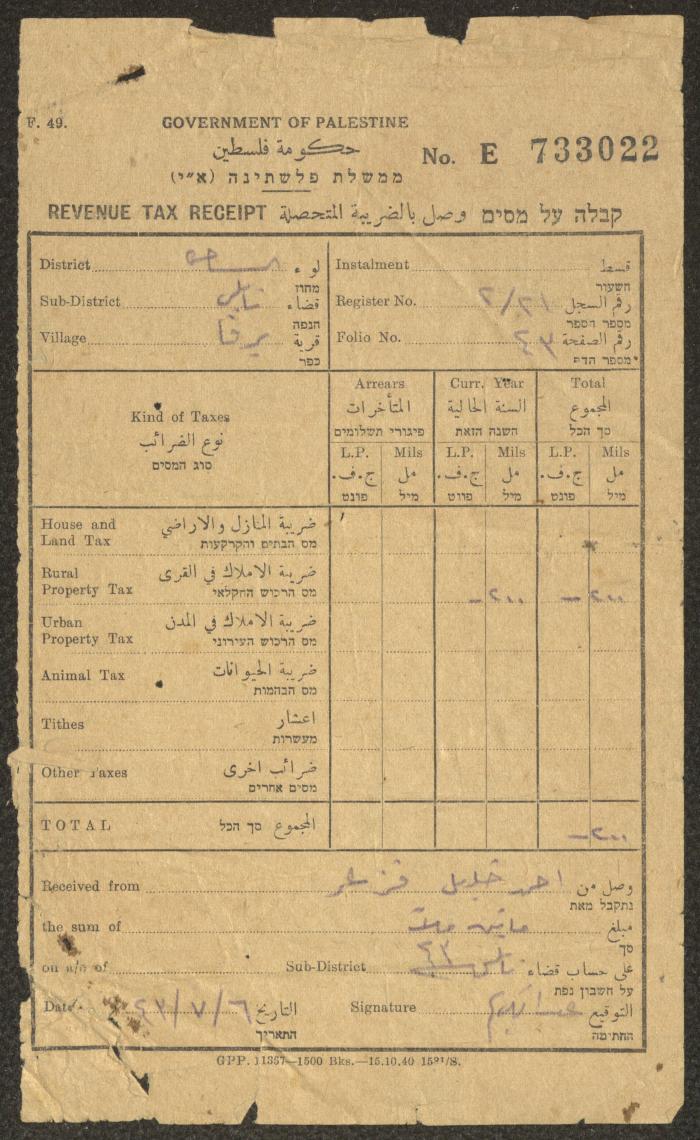 F. 49.
GOVERNMENT OF PALESTINE
حكومة فلسطين
ממשלת פלשתינה (א״י)
No. E 733022
REVENUE TAX RECEIPT وصل بالضريبة المتحصلة קבלה על מסים
District لواء
מחוז
Sub-District نابلس قضاء
הנפה
Village برقا قرية
כפר
Instalment قسط
השעור
Register No. ٢/٢١ رقم السجل
מספר הספר
Folio No. ٤٣ رقم الصفحة
מספר הדף
Kind of Taxes
نوع الضرائب
סוג המסים
Arrears
المتأخرات
פיגורי תשלומים
Curr. Year
السنة الحالية
השנה הזאת
Total
المجموع
סך הכל
L.P. Mils L.P. Mils L.P. Mils
ج.ف. مل ج.ف. مل ج.ف. مل
פונט מיל פונט מיל פונט מיל
House and Land Tax ضريبة المنازل والاراضي
מס הבתים והקרקעות
Rural Property Tax ضريبة الاملاك في القرى
מס הרכוש החקלאי
- ٢٠٠ - ٢٠٠
Urban Property Tax ضريبة الاملاك في المدن
מס הרכוש העירוני
Animal Tax ضريبة الحيوانات
מס הבהמות
Tithes اعشار
מעשרות
Other Taxes ضرائب اخرى
מסים אחרים
TOTAL المجموع סך הכל
- ٢٠٠
Received from احمد خليل وصل من
נתקבל מאת
the sum of مبلغ
סך
on a/c of Sub-District نابلس على حساب قضاء
על חשבון נפת
Date ٤٣/٧/٦ التاريخ
התאריך
Signature التوقيع
החתימה
GPP. 11357—1500 Bks.—15.10.40